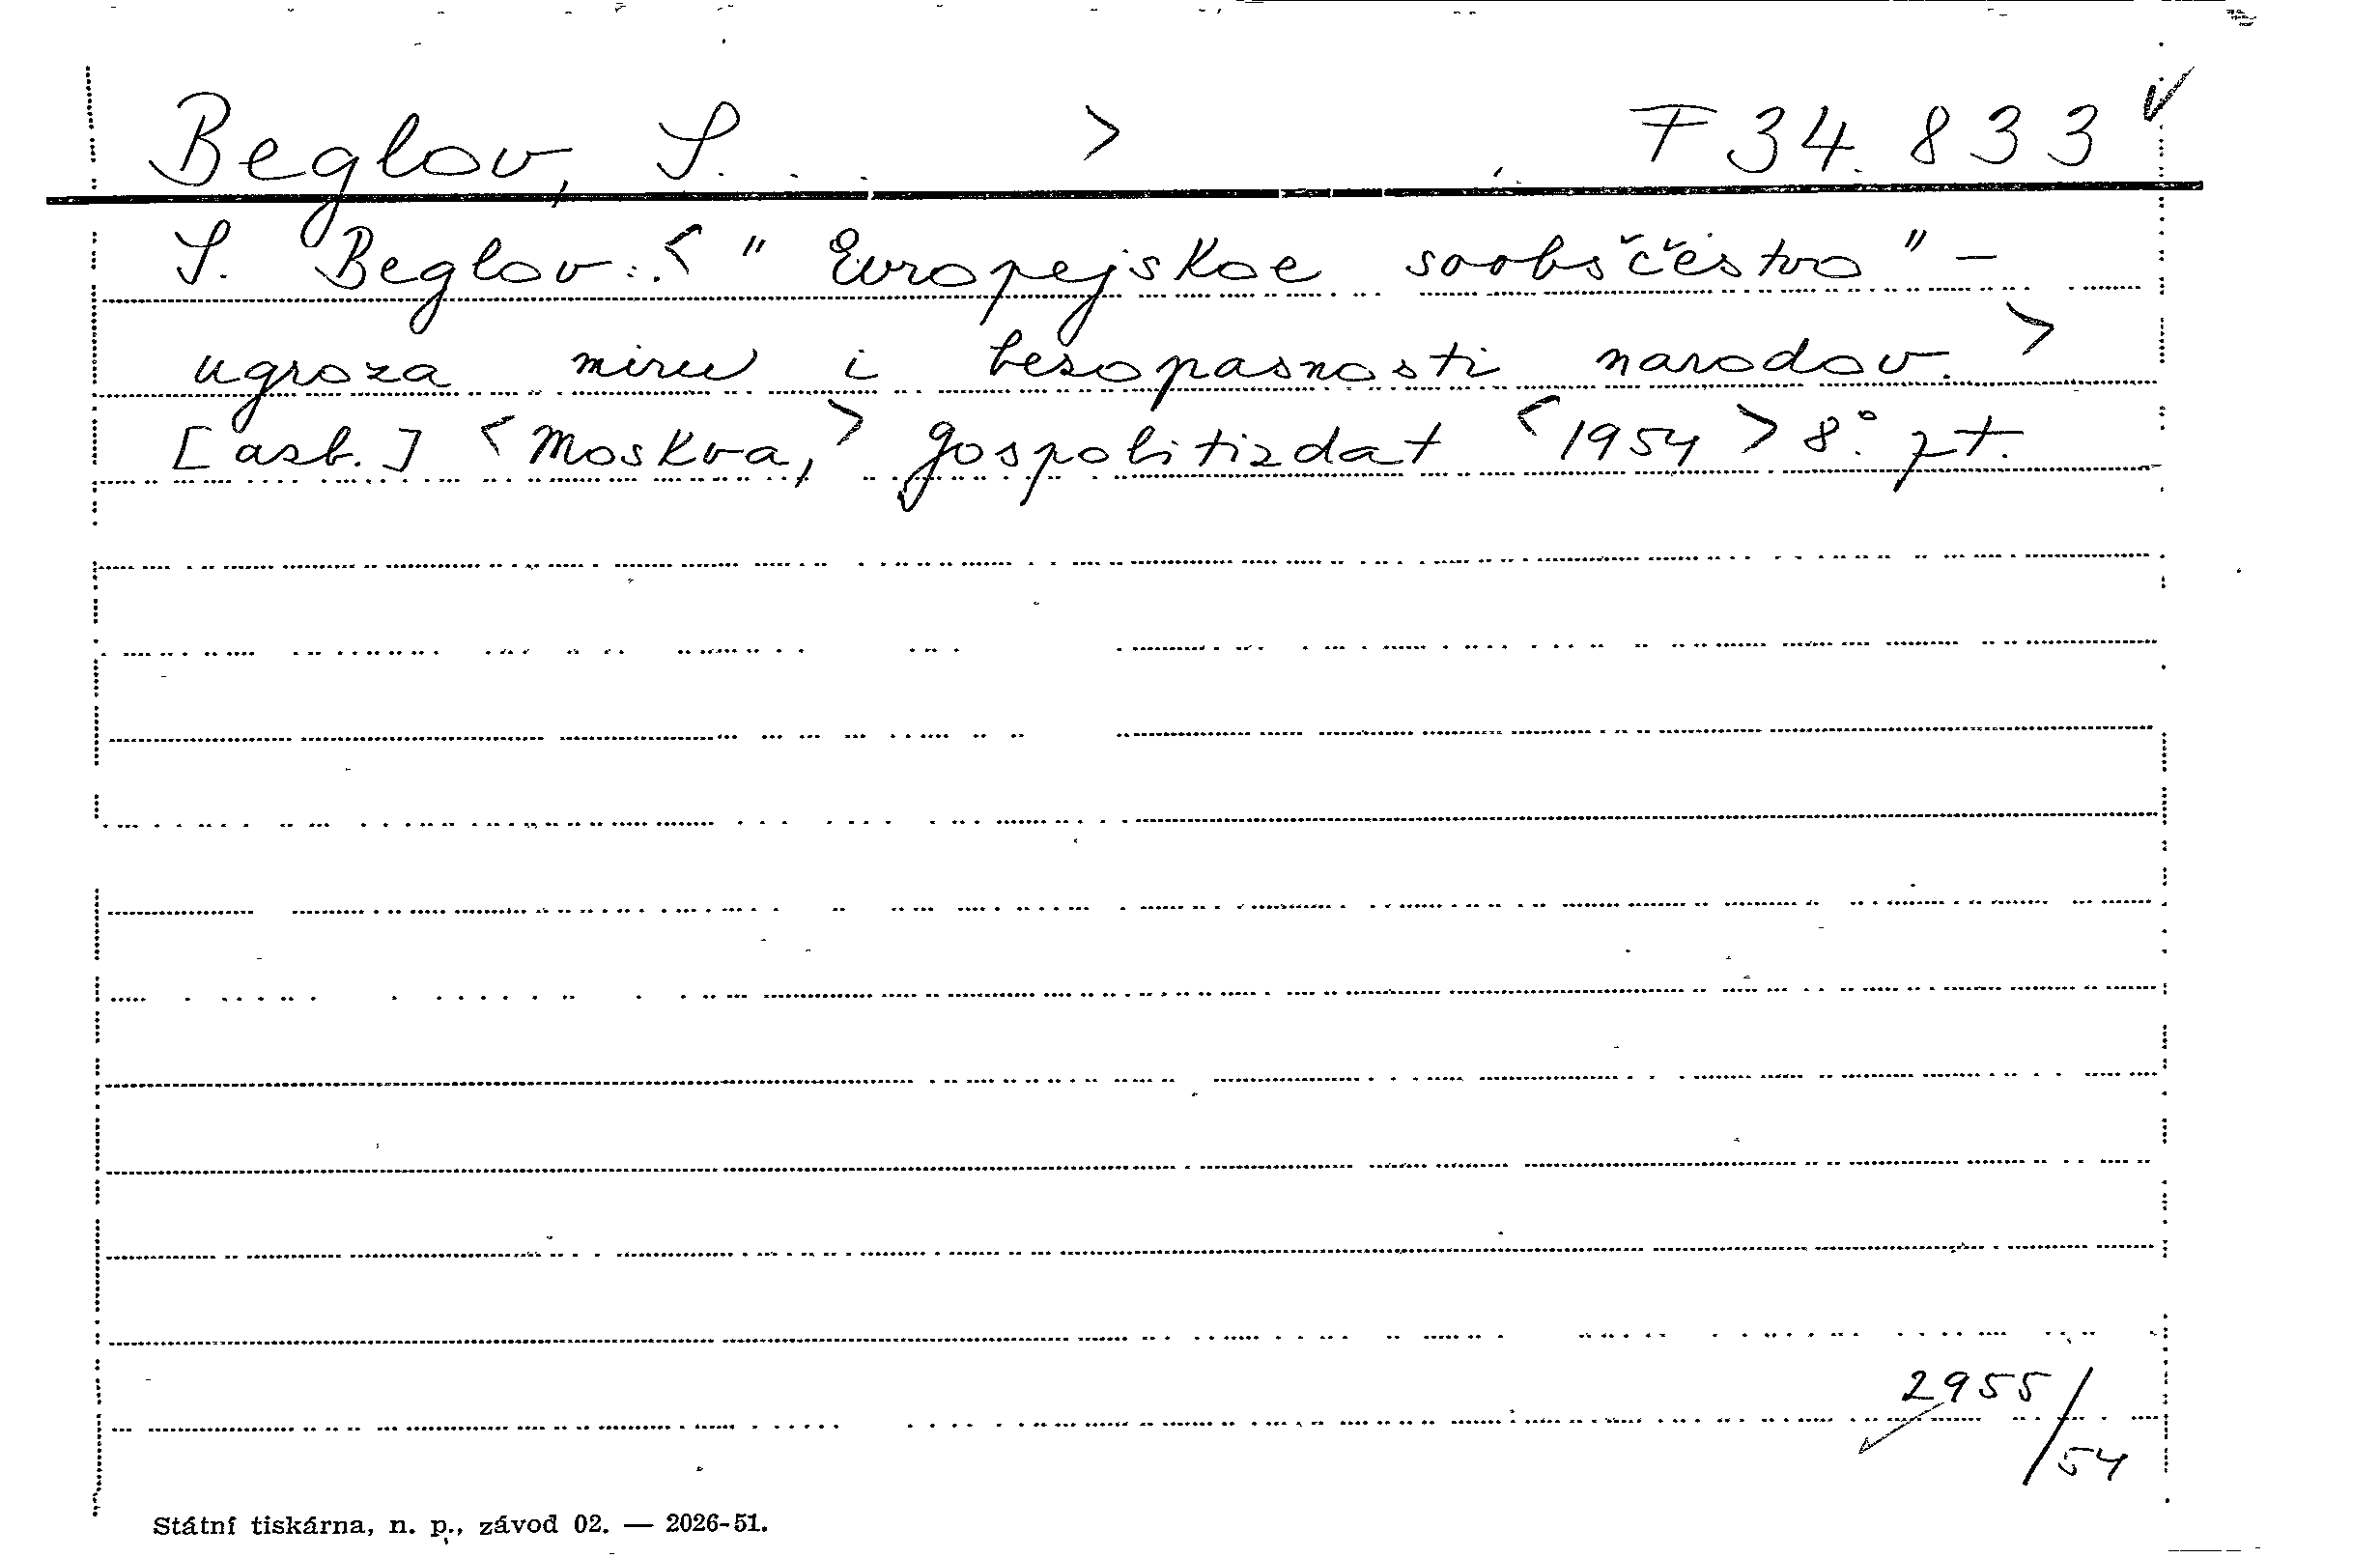 Beglov, S. > F 34.833
S. Beglov: < " Evropejskoe soobščestvo" -
ugroza miru i bezopasnosti narodov. >
[azb.] < Moskva, > Gospolitizdat < 1954 > 8° pt.
2955/54
Státní tiskárna, n. p., závod 02. — 2026-51.